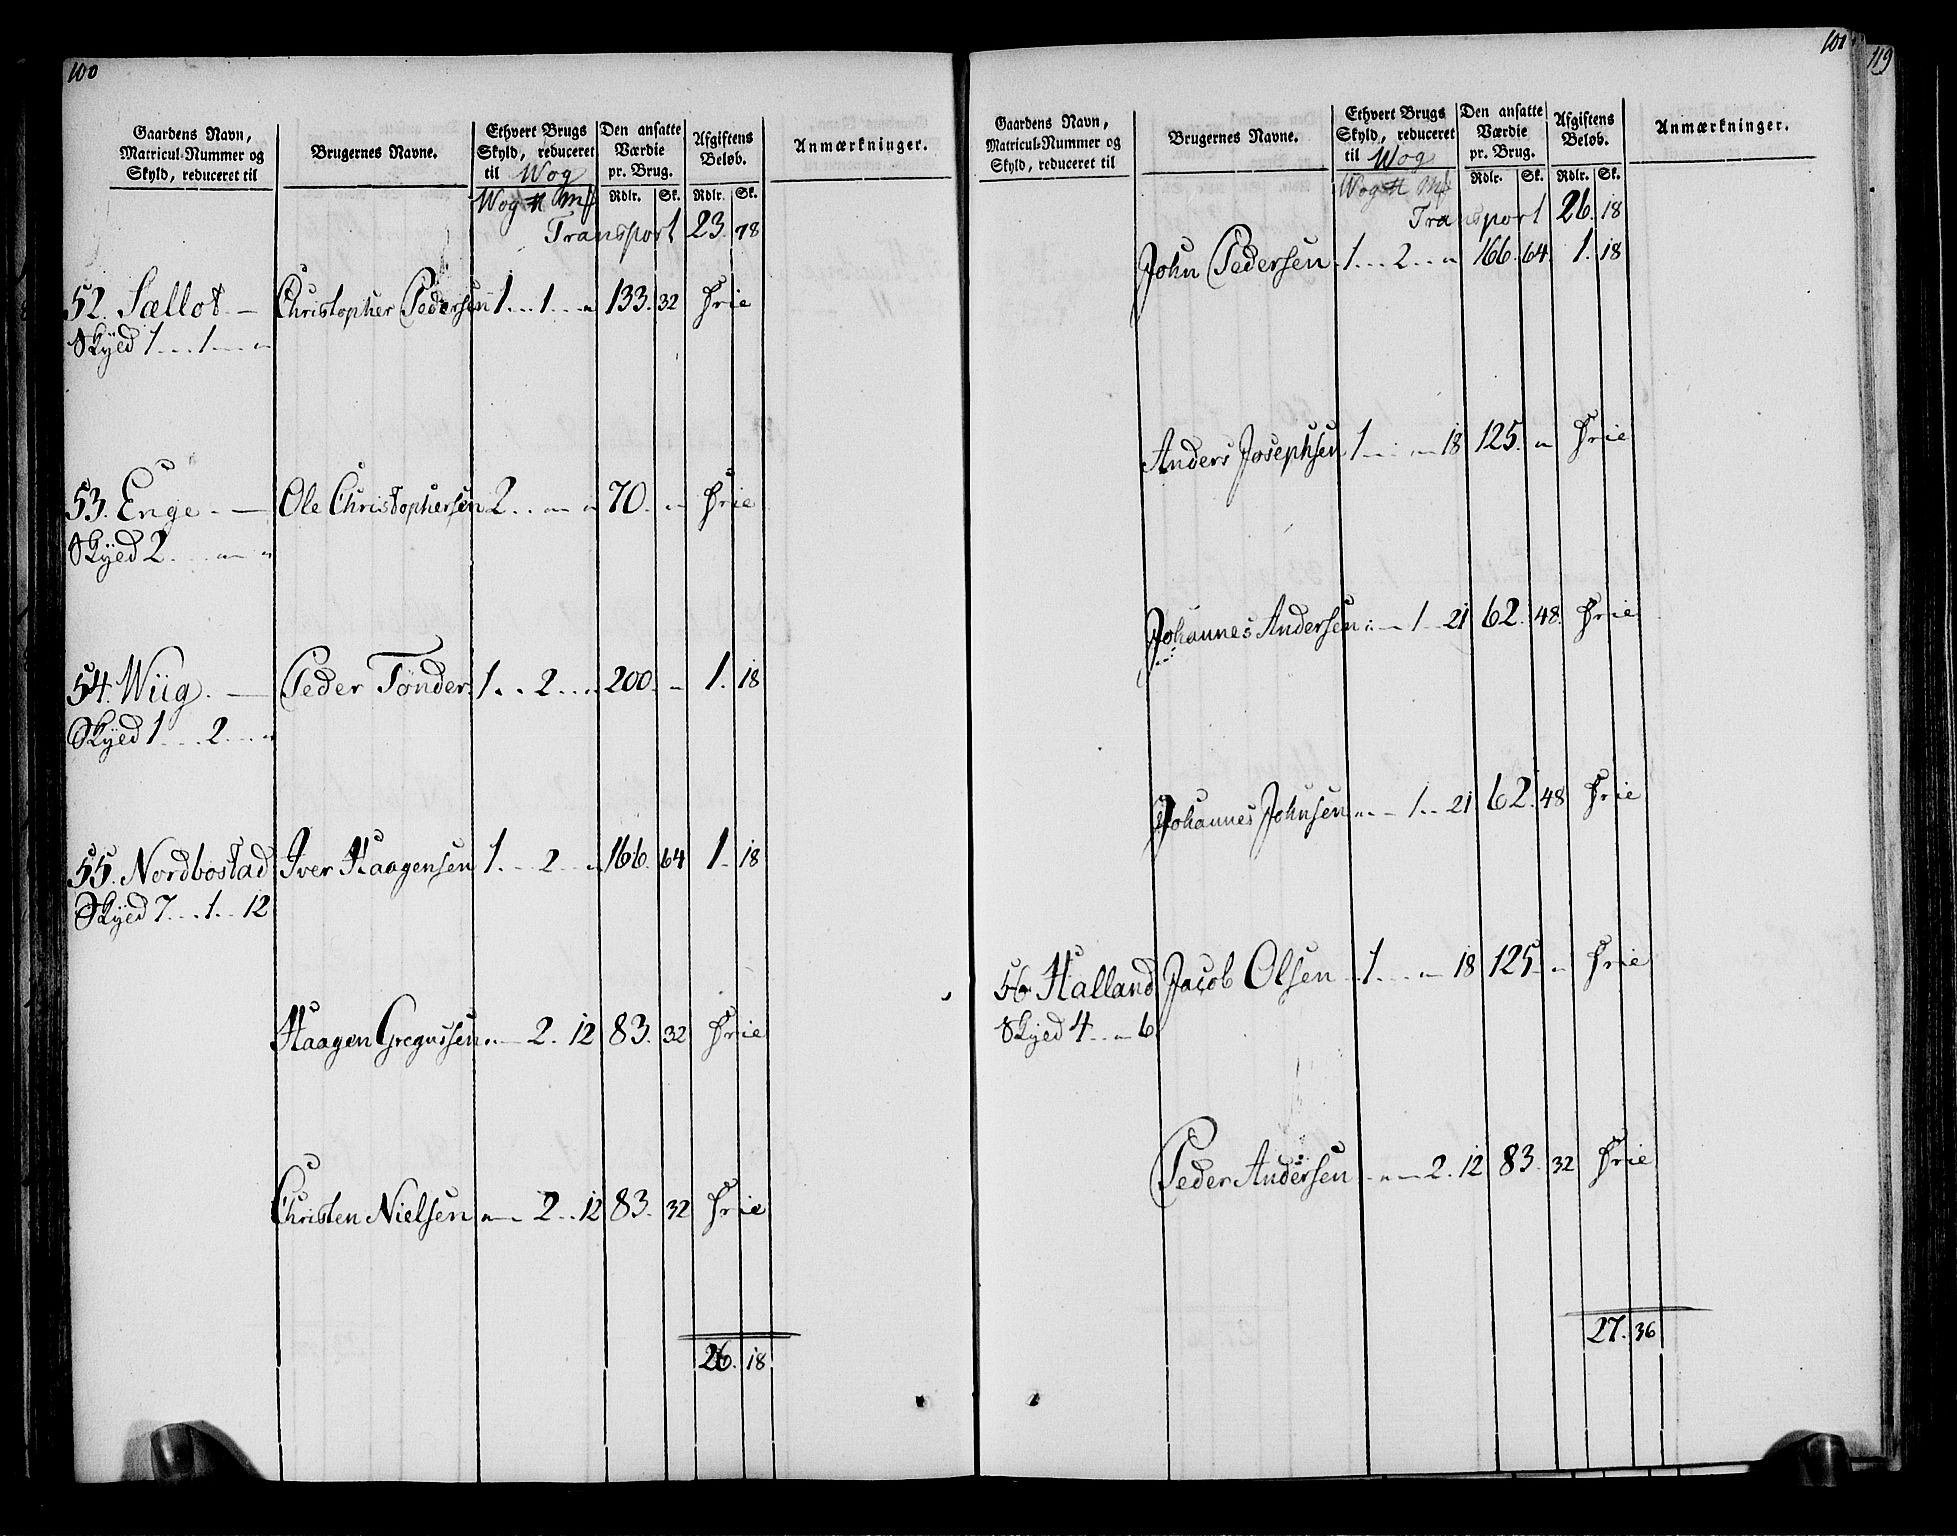 100
Gaardens Navn, Matricul-Nummer og Skyld, reduceret til
Brugernes Navne.
Ethvert Brugs Skyld, reduceret til Wog
Den ansatte Værdie pr. Brug.
Afgiftens Beløb.
Anmærkninger.
Wog Rdlr. Sk. Rdlr. Sk.
Transport 23. 78
52. Sællot. — Christopher Pedersen 1...1.." 133. 32 Frie
Skyed 1...1..."
53. Enge. — Ole Christophersen 2.. " " 70. " Frie
Skyed 2... " "
54. Wiig. — Peder Tönder 1...2..." 200. " 1. 18
Skyed 1...2..."
55. Nordbostad Iver Haagensen 1...2.." 166. 64 1. 18
Skyed 7...1..12
Haagen Gregussen " 2. 12 83. 32 Frie
Christen Nielsen " 2..12 83. 32 Frie
26. 18
101
119
Gaardens Navn, Matricul-Nummer og Skyld, reduceret til
Brugernes Navne.
Ethvert Brugs Skyld, reduceret til Wog
Den ansatte Værdie pr. Brug.
Afgiftens Beløb.
Anmærkninger.
Wog Rdlr. Sk. Rdlr. Sk.
Transport 26. 18
John Pedersen 1...2.." 166. 64 1. 18
Anders Josephsen 1... " 18 125. " Frie
Johannes Andersen " 1..21 62. 48. Frie
Johannes Johnsen " 1..21 62. 48 Frie
56 Halland Jacob Olsen 1... " 18 125. " Frie
Skyed 4.. " 6
Peder Andersen " 2. 12 83. 32 Frie
27. 36